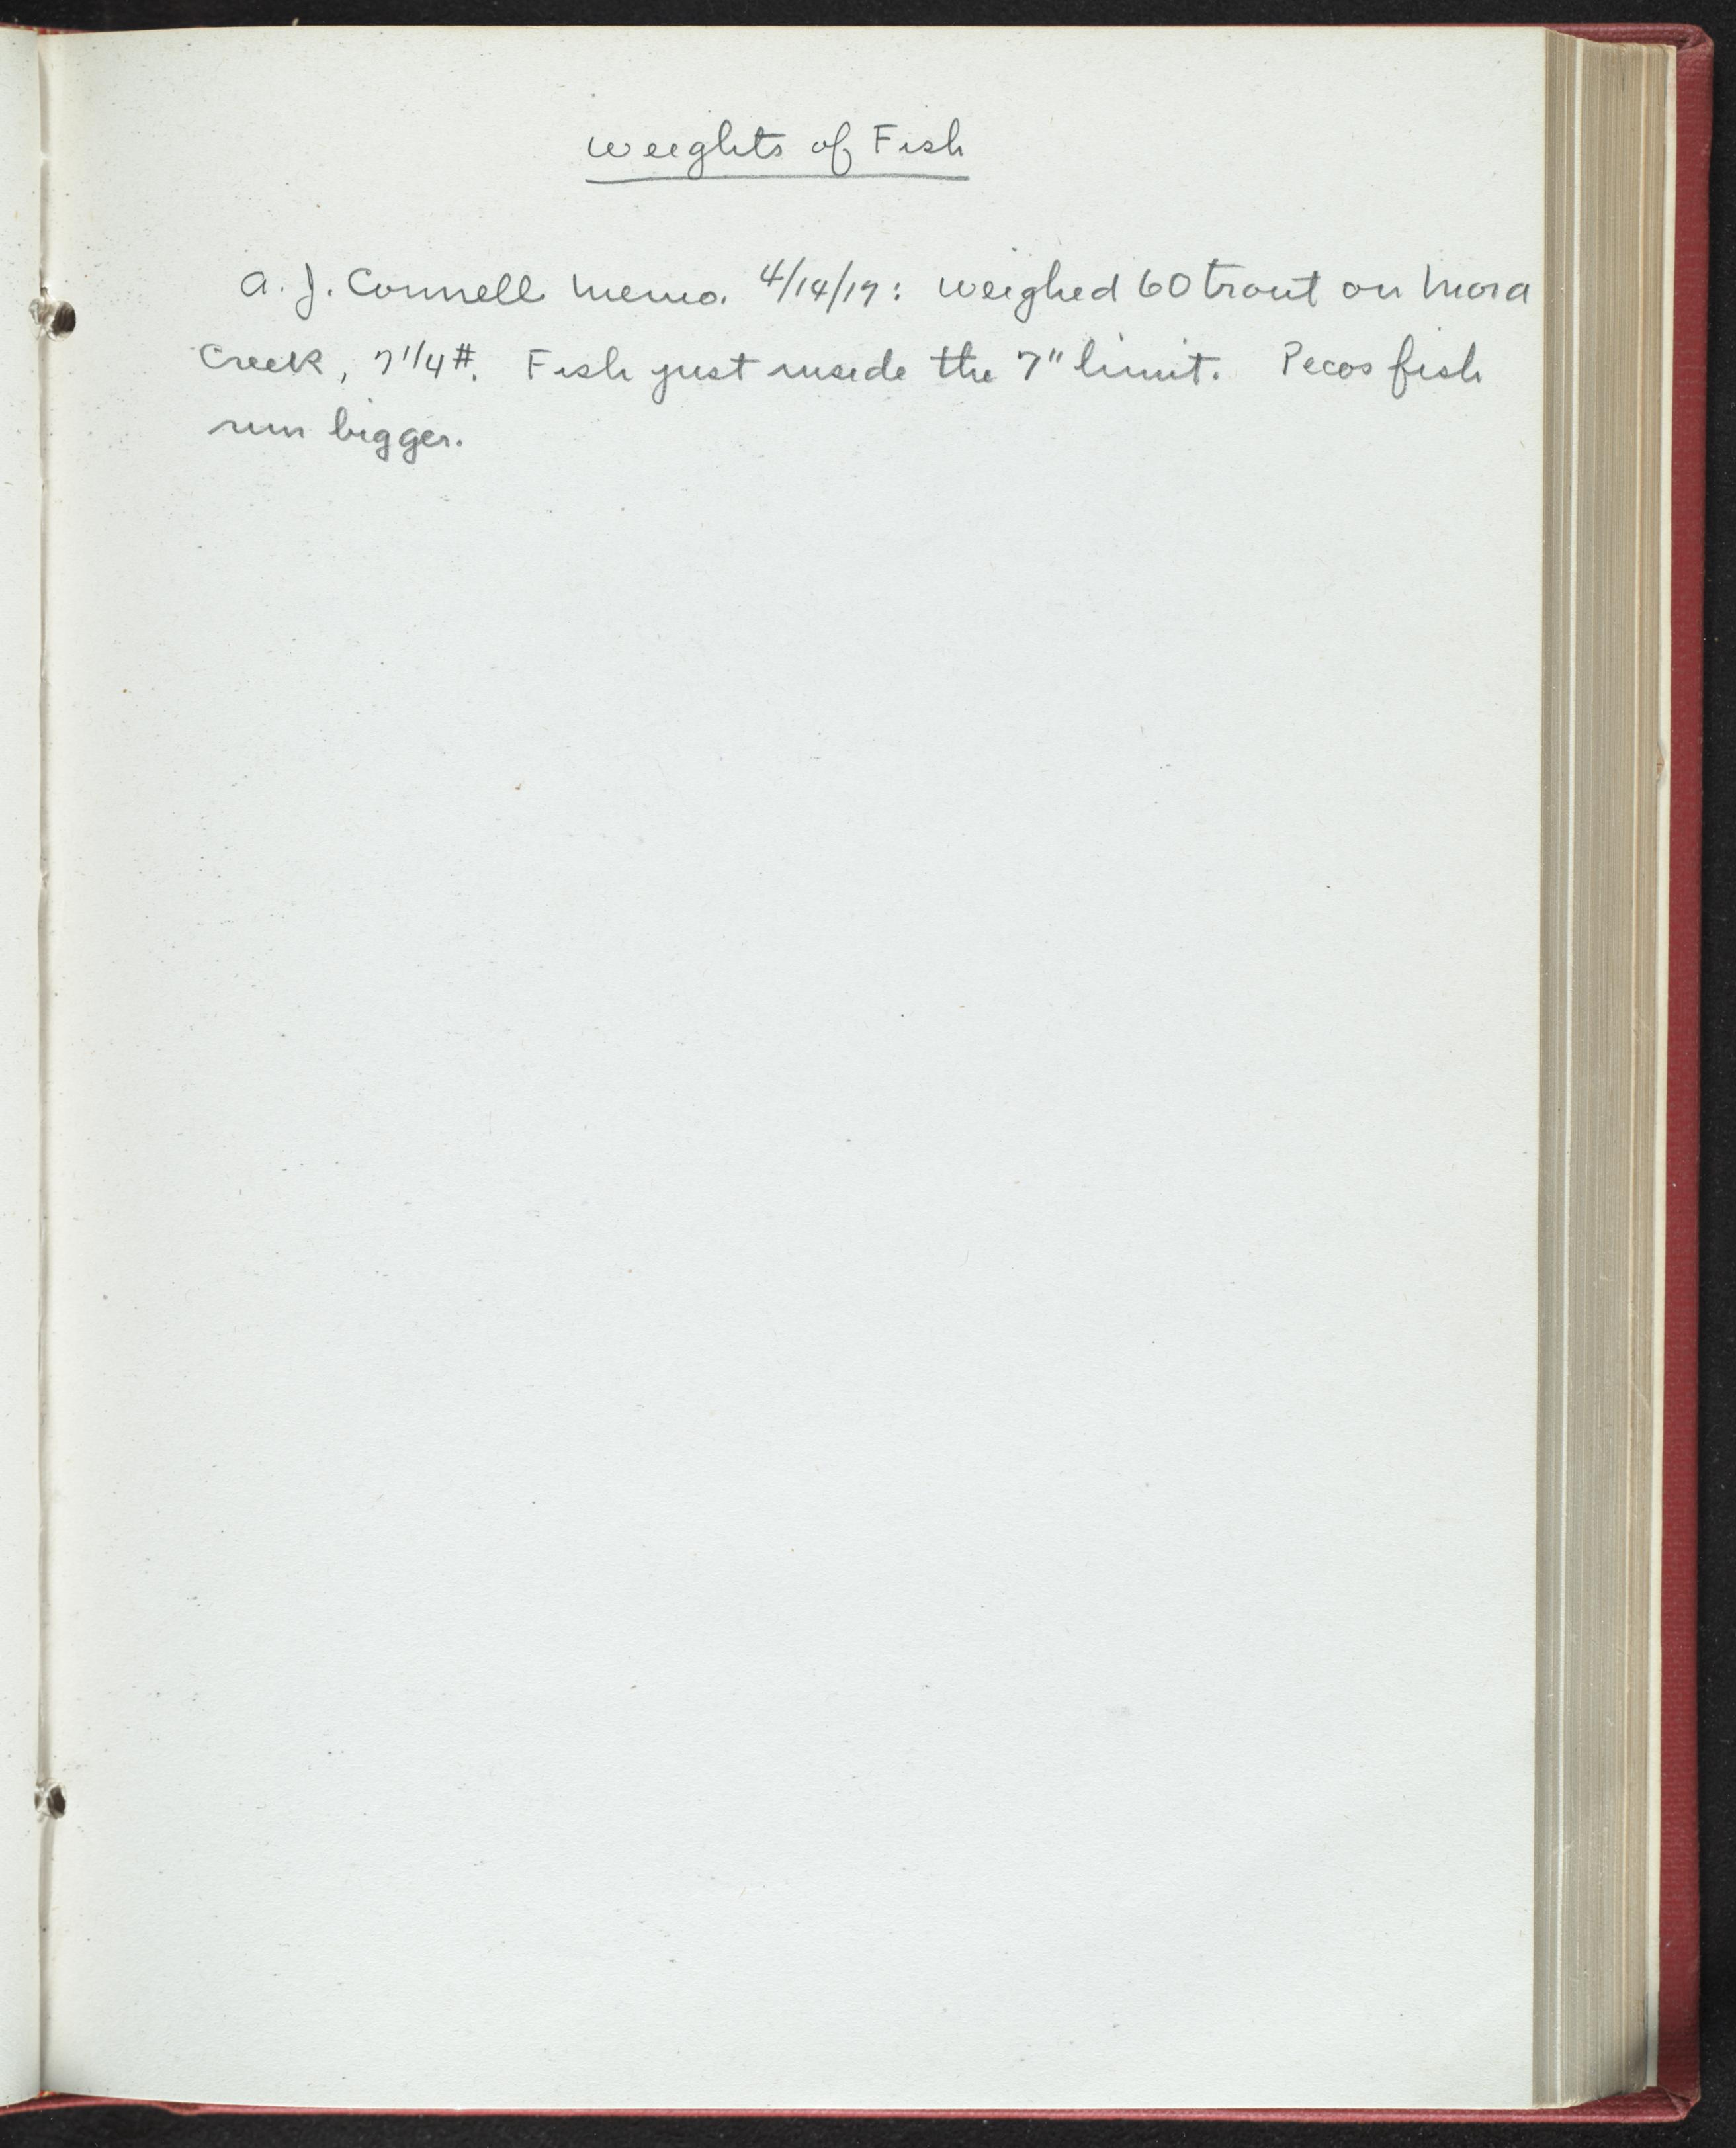 Weights of Fish
A. J. Connell memo. 4/14/19: Weighed 60 trout on Mora
Creek, 7 1/4 #. Fish just inside the 7" limit. Pecos fish
run bigger.